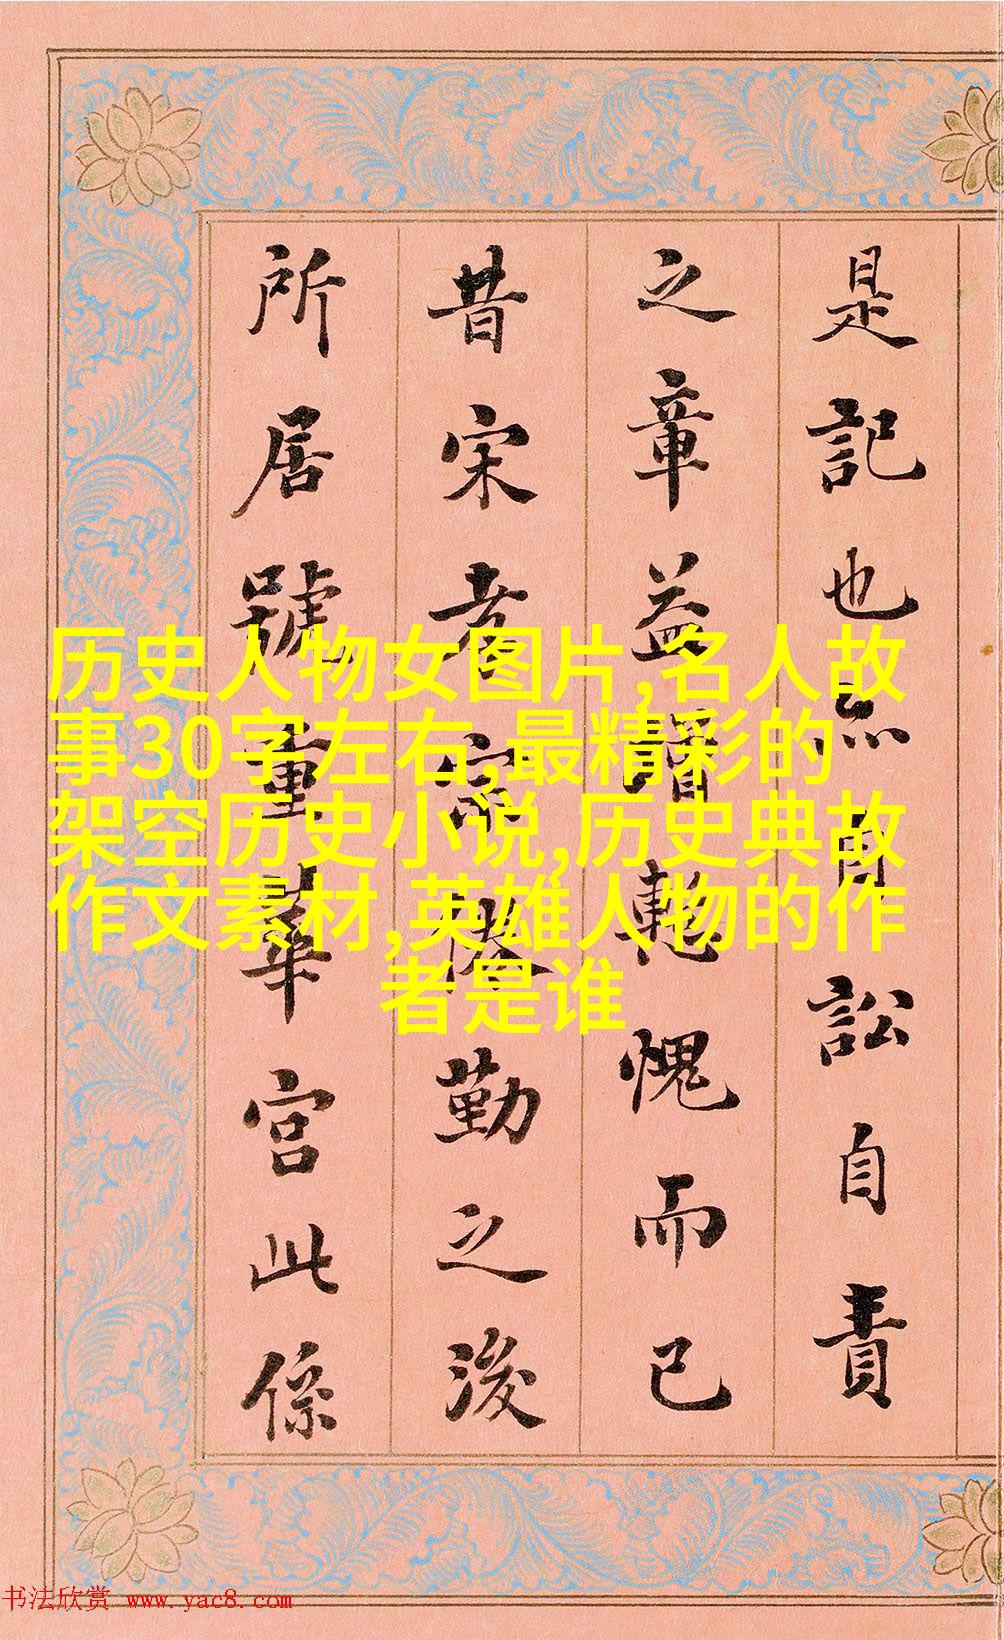 是記也亦自訟自責
之章益增慙愧而已
昔宋孝宗倦勤之後
所居號重華宮此係
历史人物女图片,名人故
事30字左右,最精彩的
架空历史小说,历史典故
作文素材,英雄人物的作
者是谁
书法欣赏 www.yac8.com